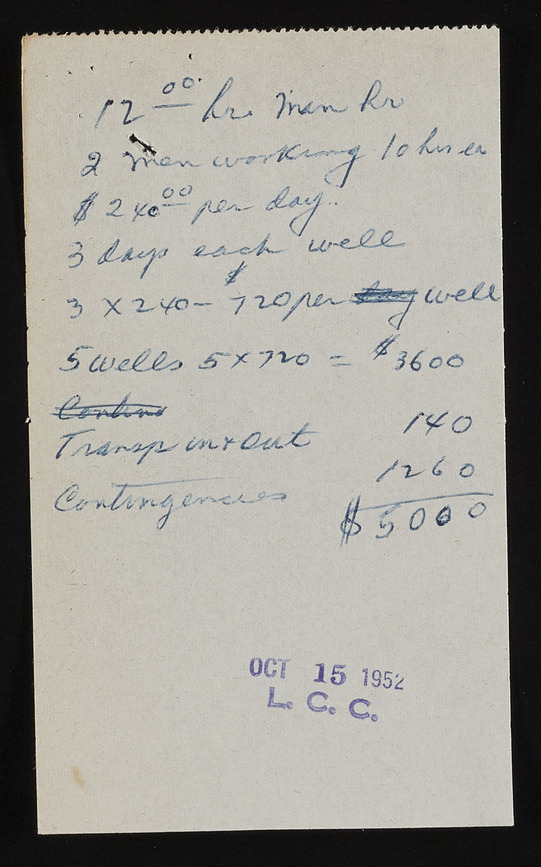 12 00 hr. Man hr
2 Men working 10 hrs ea
$ 240 00 per day.
3 days each well
3 X 240 - $720 per day well
5 wells 5 x 720 = $3600
Transp in + Out 140
Contingencies 1260
$ 5000
OCT 15 1952
L. C. C.